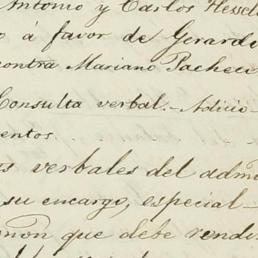 Antonio y Carlos Hessel
o á favor de Gerardo
contra Mariano Pacheco
Consulta verbal.- Adicio-
entos.
as verbales del adm
su encargo, especial-
que debe rendir